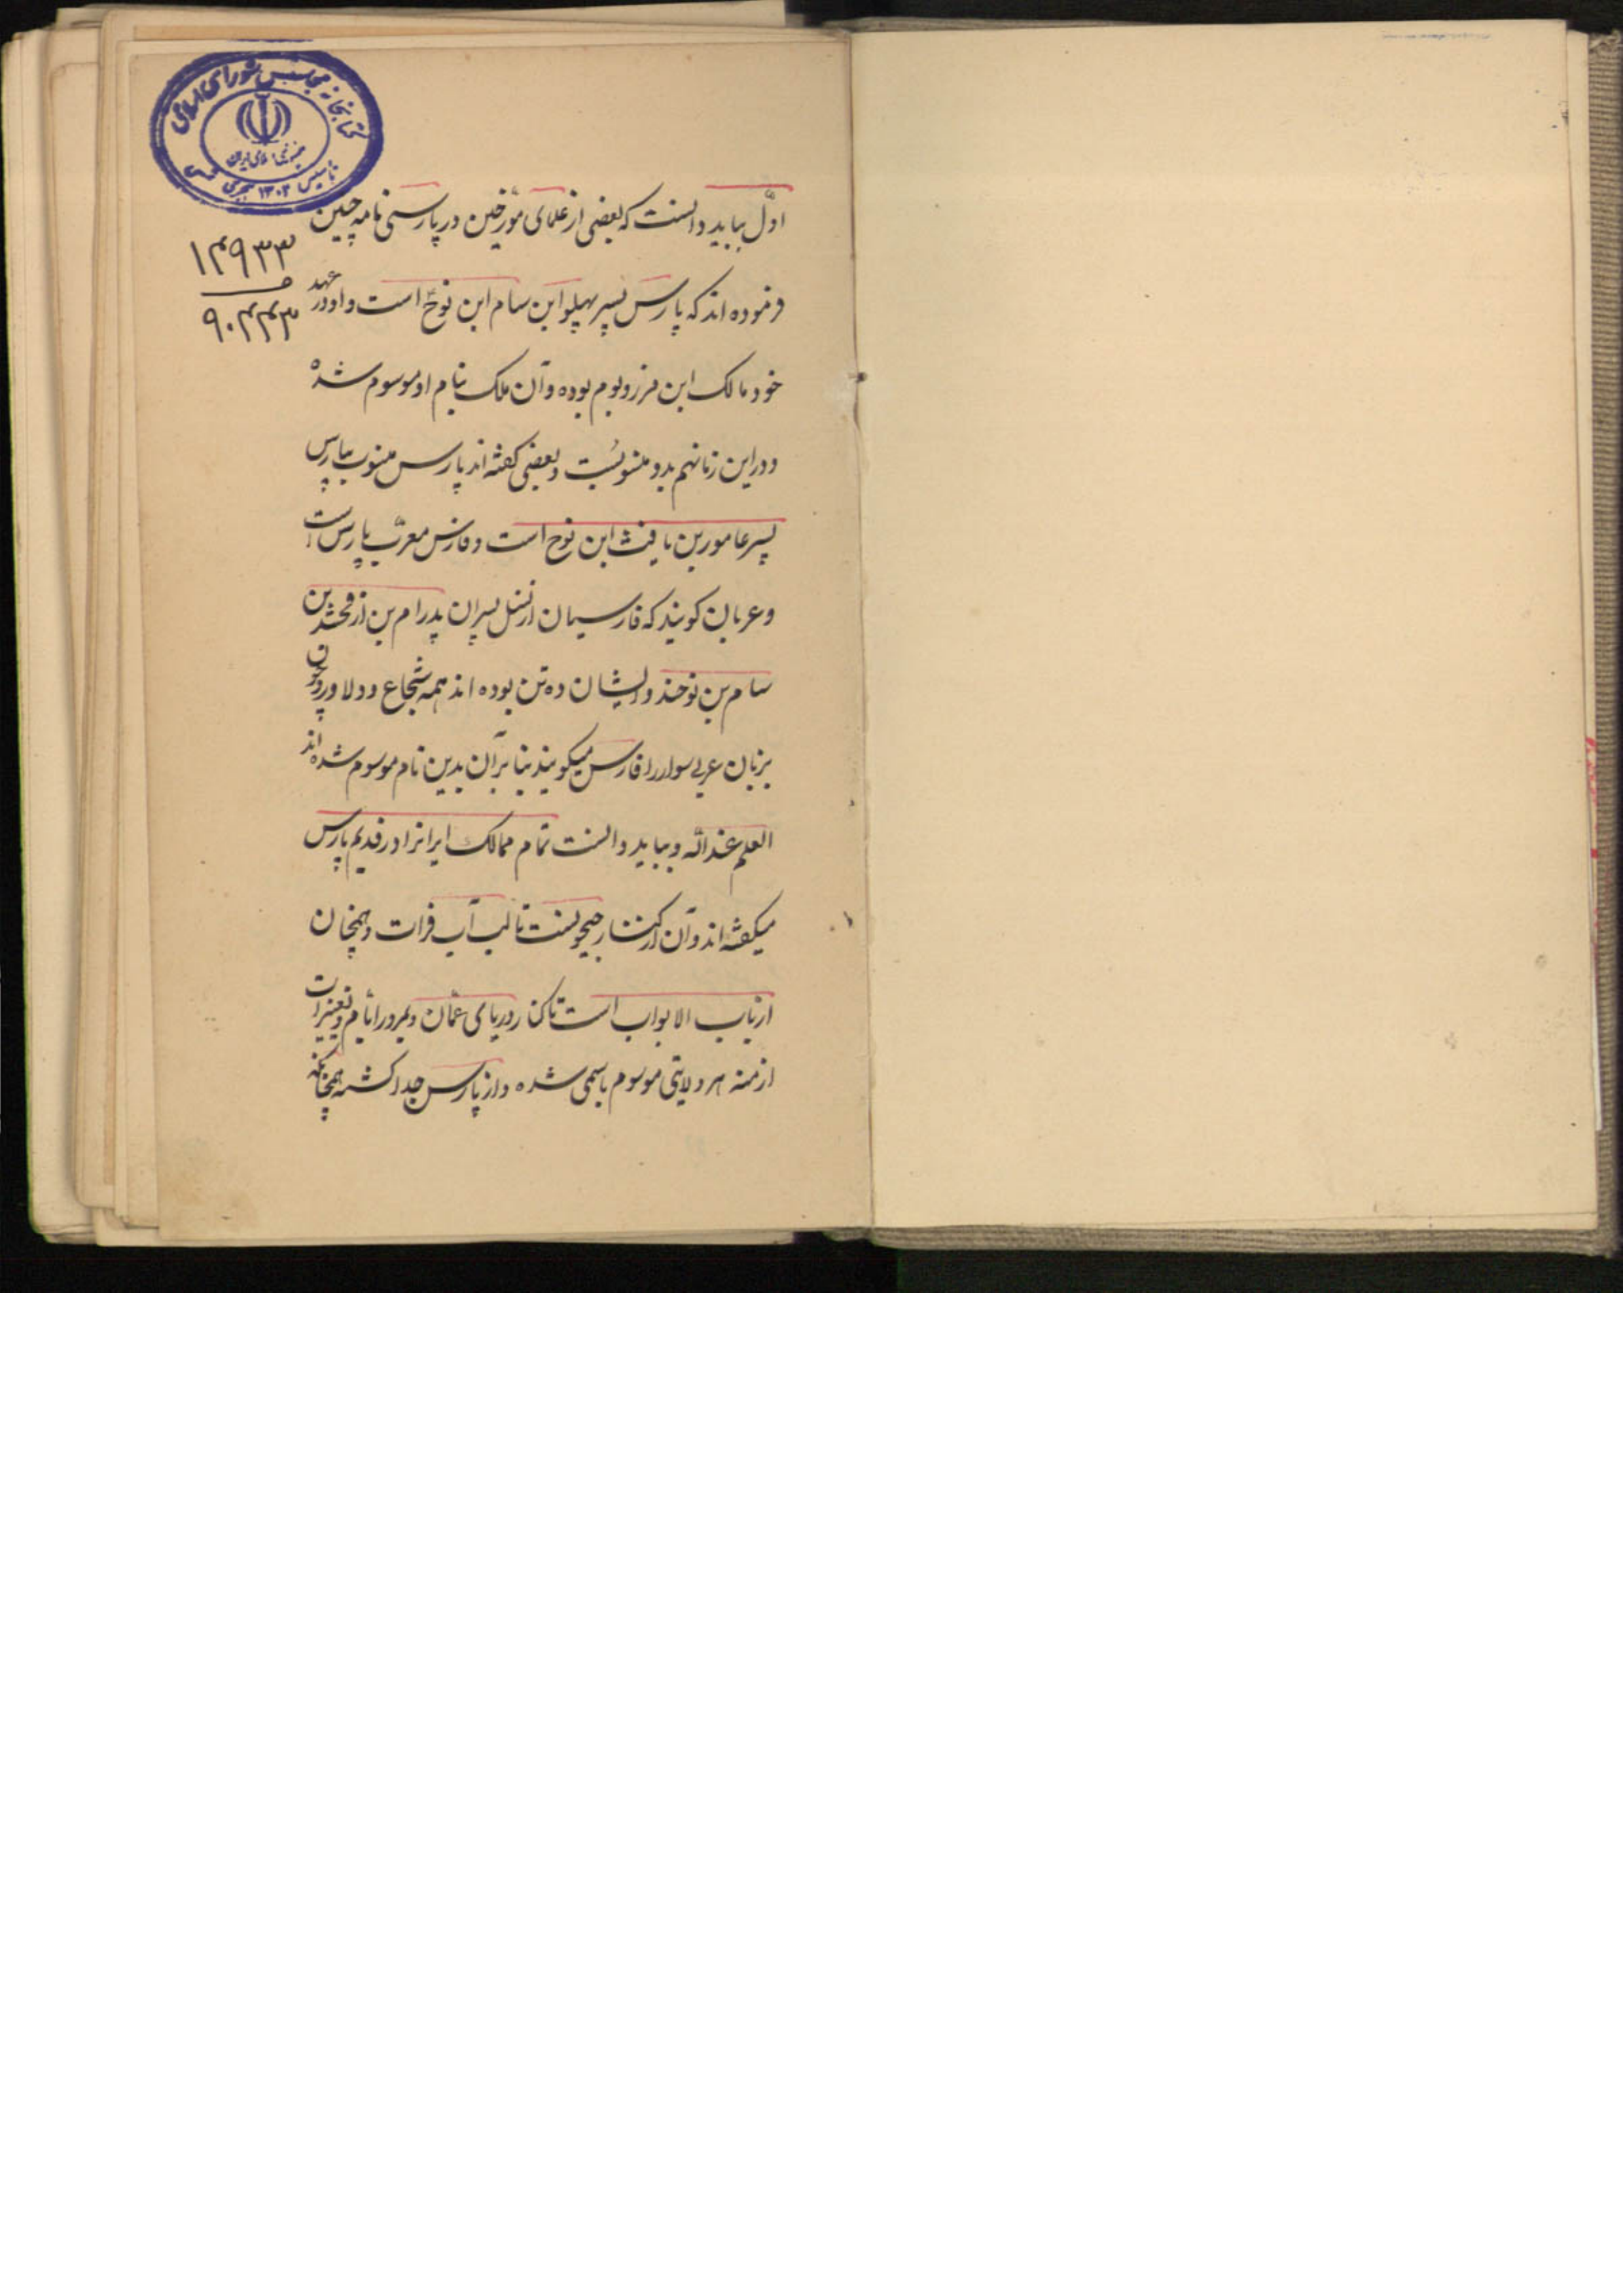 کتابخانه مجلس شورای اسلامی
جمهوری اسلامی ایران
تأسیس ۱۳۰۲ هجری
۱۴۹۳۳
۹۰۴۴۳
اوّل بباید دانست که بعضی از علمای مورّخین در پارسی نامه چنین
فرموده اند که پارس پسر پهلو ابن سام ابن نوح است و او در عهد
خود مالک این مرز و بوم بوده و آن ملک بنام او موسوم شده
و در این زمانهم بدو منسوبست و بعضی گفته اند پارس منسوب بپارس
پسر عامور بن یافث ابن نوح است و فارس معرّب پارس است
و عربان کویند که فارسیان از نسل پسران پدرام بن ارفخشد بن
سام بن نوحند و ایشان ده تن بوده اند همه شجاع و دلاور و چون
بزبان عربی سوار را فارس میکویند بنا بر آن بدین نام موسوم شده اند
العلم عند الله و بباید دانست تمام ممالک ایرانرا در قدیم پارس
میکفته اند و آن از کنار جیحونست تا لب آب فرات و همچنان
از باب الابواب است تا کنار دریای عمّان و بمرور ایّام و تغییرات
ازمنه هر ولایتی موسوم باسمی شده و از پارس جدا کشته همچنانکه